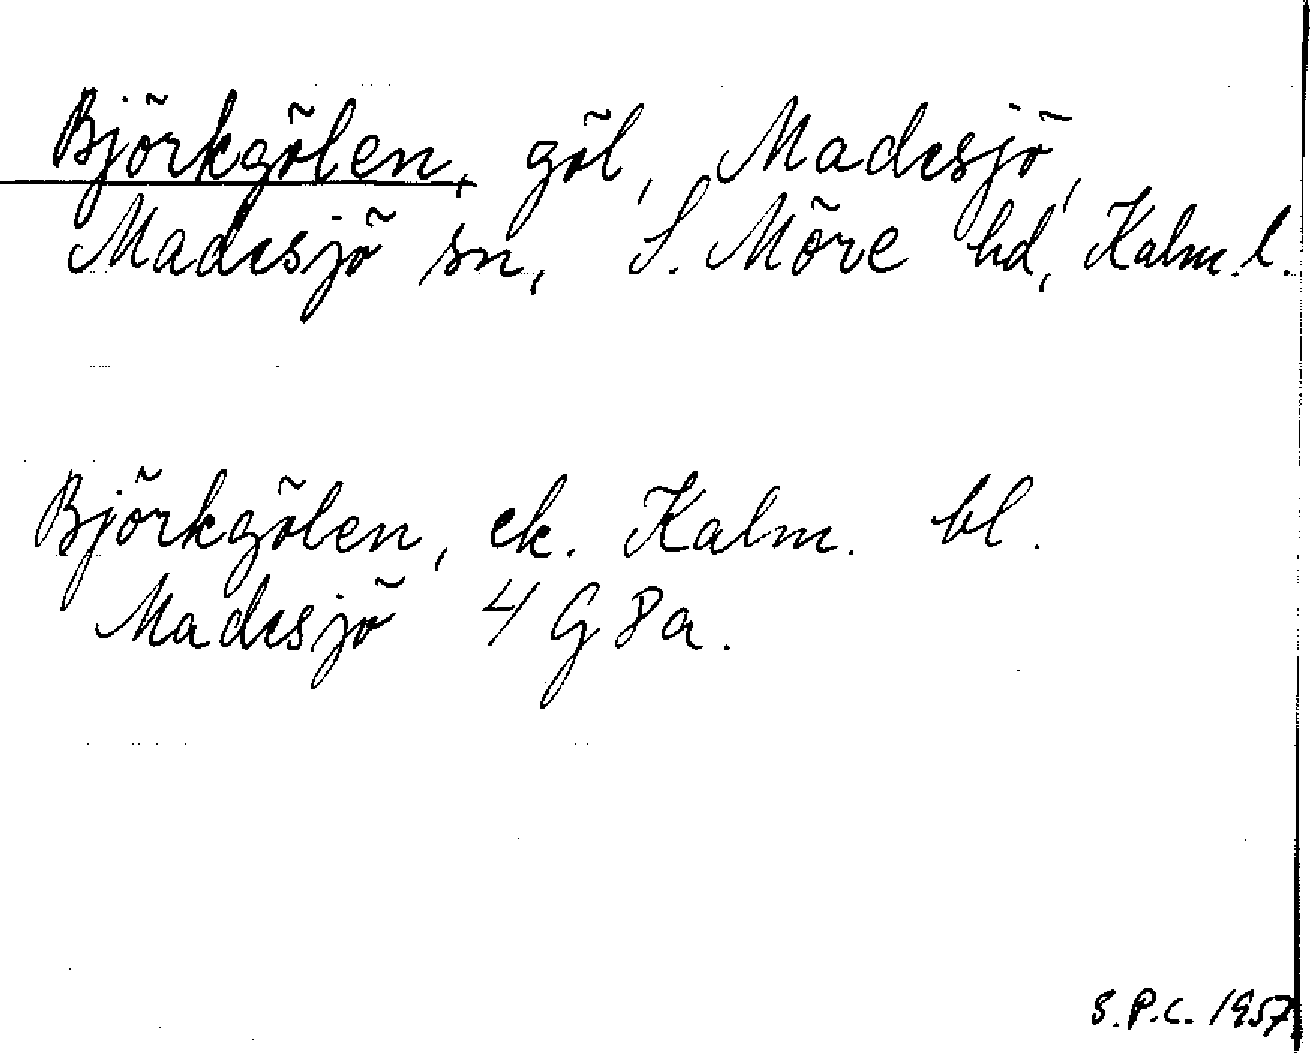 Björkgölen, göl, Madesjö,
Madesjö sn, S. Möre hd, Kalm. l.
Björkgölen, ek. Kalm. bl.
Madesjö 4 G 8a.
S.P.C. 1957